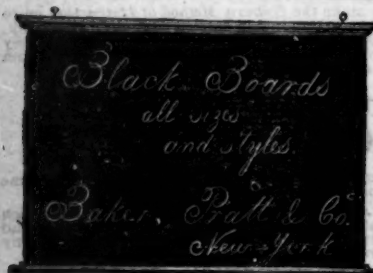 Black Boards
all sizes
and styles.
Baker, Pratt & Co.
New-York